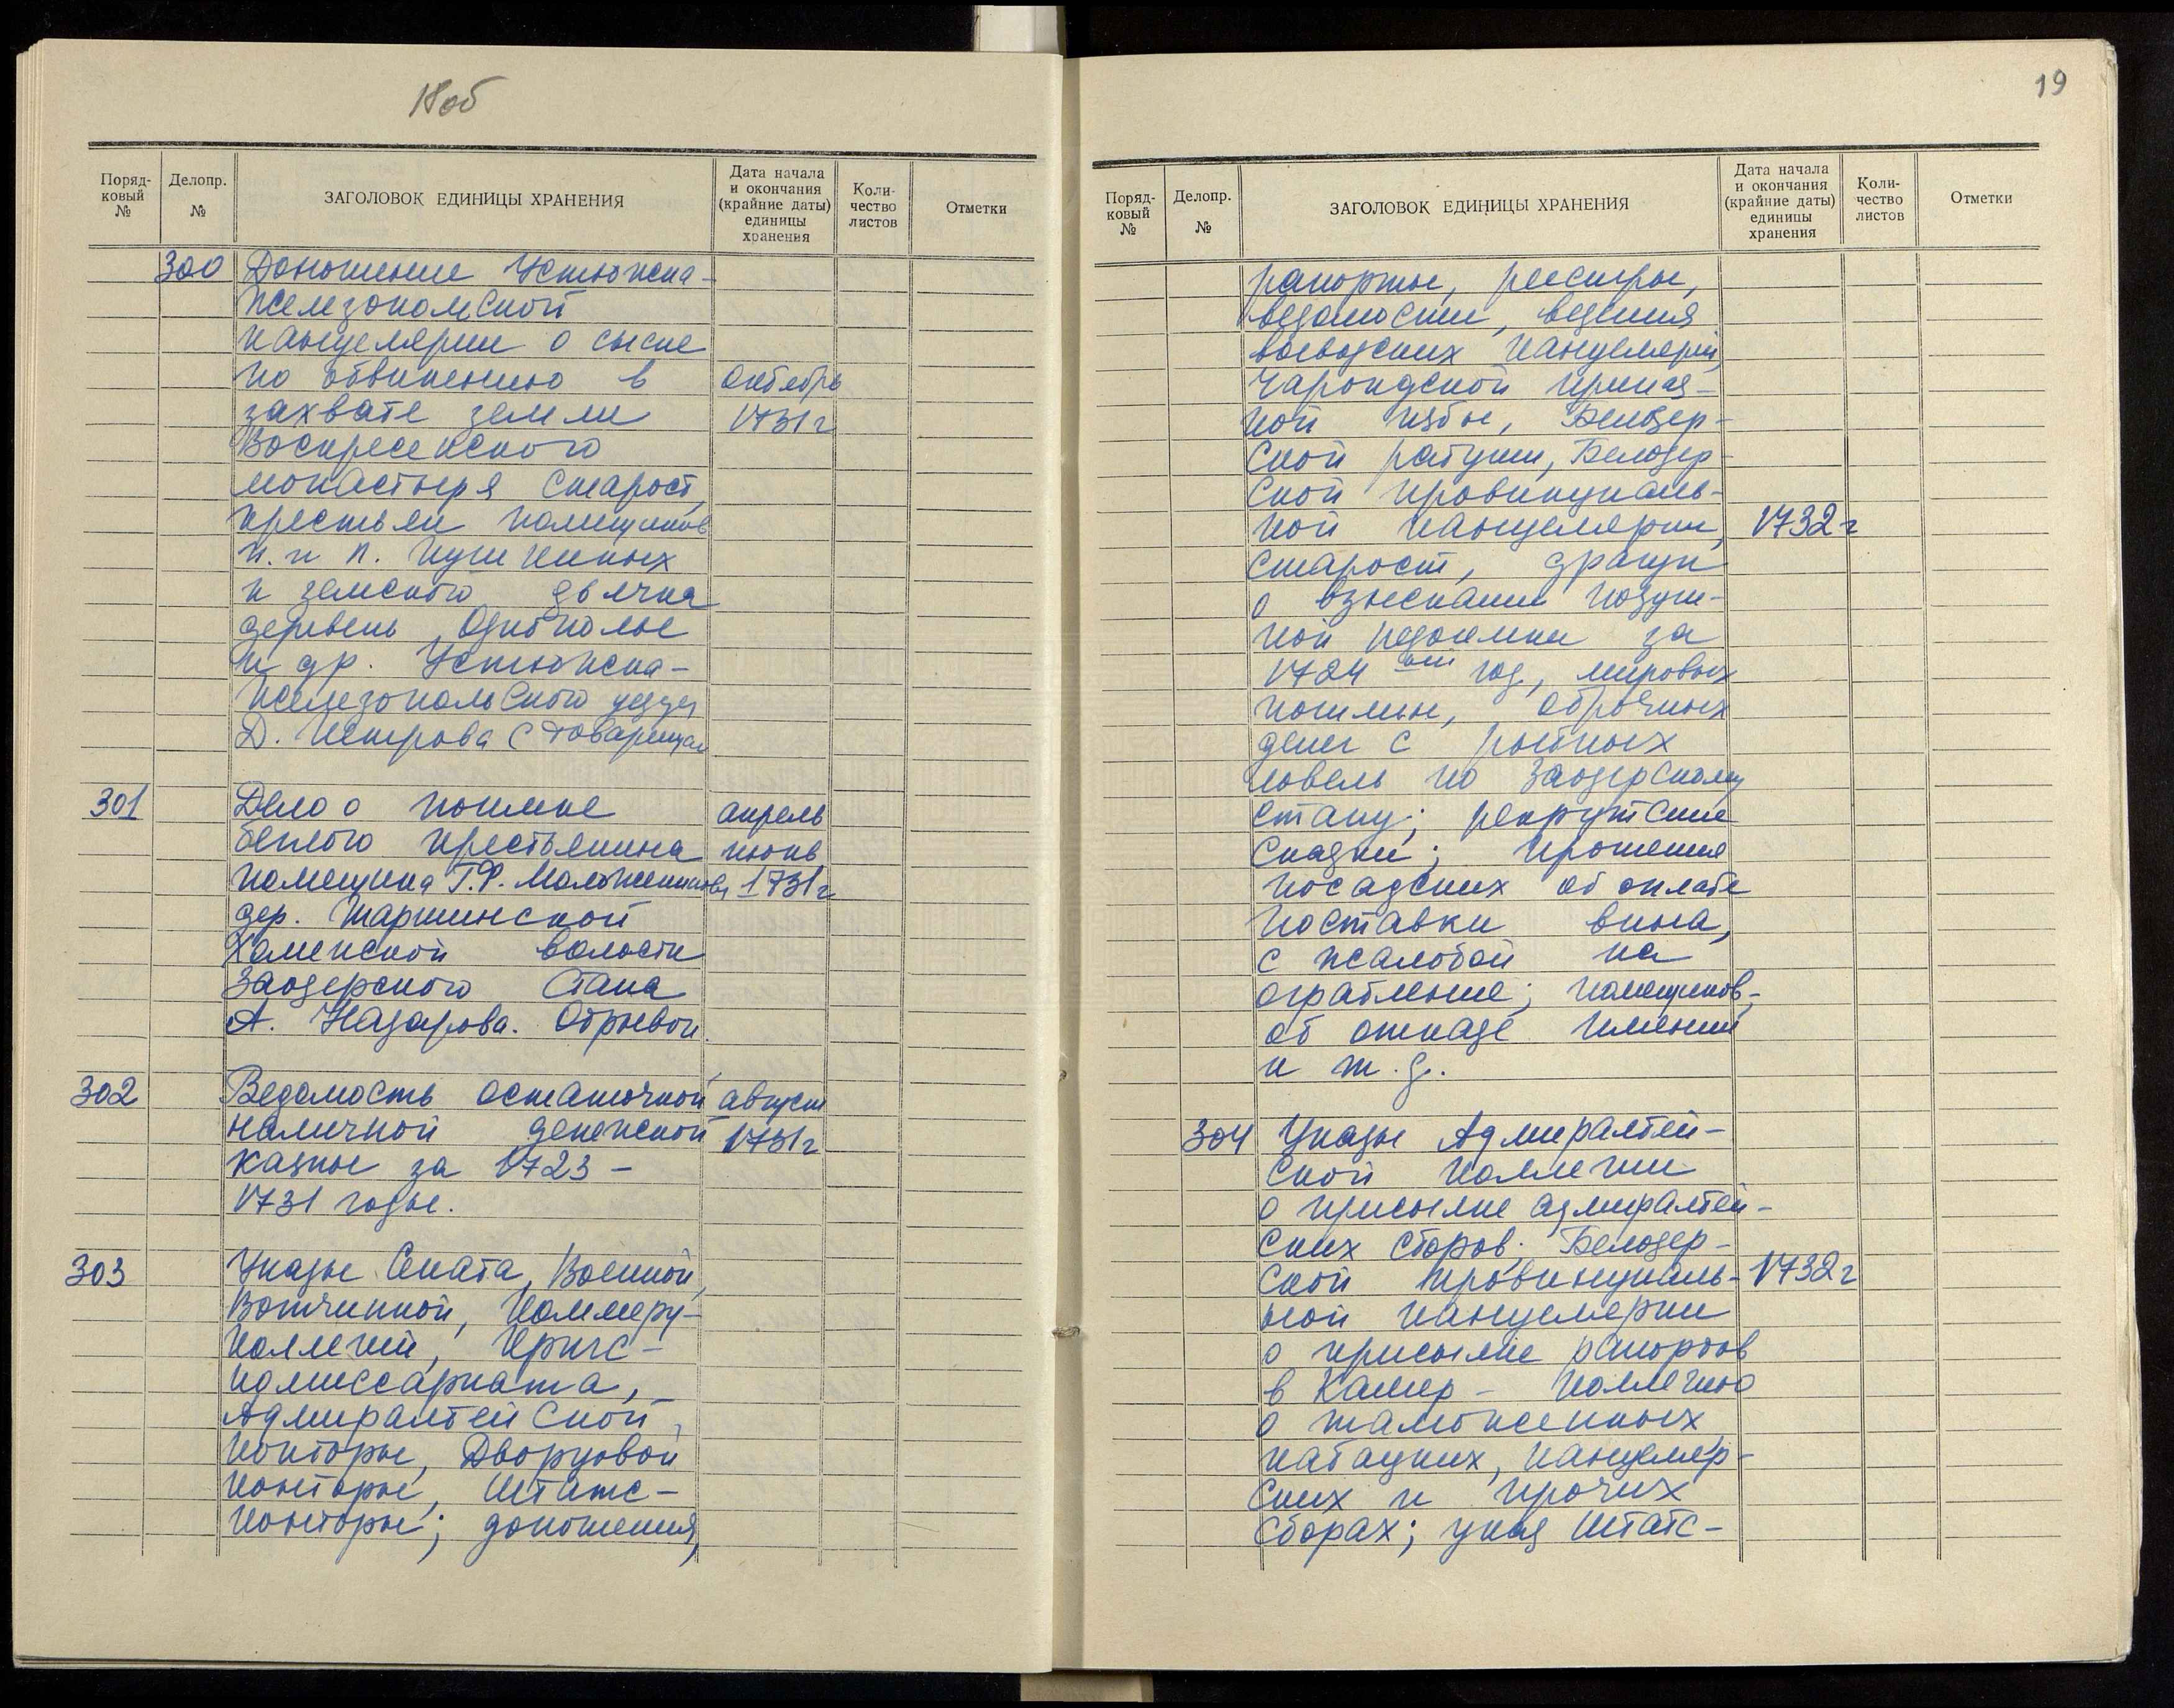 18об
Поряд-
ковый
№
Делопр.
№
ЗАГОЛОВОК ЕДИНИЦЫ ХРАНЕНИЯ
Дата начала
и окончания
(крайние даты)
единицы
хранения
Коли-
чество
листов
Отметки
300 Доношение Устюжна-
Железопольской
канцелярии о сыске
по обвинению в октябрь
захвате земли 1731 г
Воскресенского
монастыря старост,
крестьян помещиков
И. и П. Пушкиных
и земского дьячка
деревень Однополье
и др. Устюжна-
Железопольского уезда
Д. Петрова с товарищи
301 Дело о поимке апрель
беглого крестьянина июнь
помещика Т.Ф. 1731 г
дер.
волости
Заозерского стана
А. Назарова. Обрывок.
302 Ведомость остаточной август
наличной денежной 1731 г
казны за 1723 –
1731 годы.
303 Указы Сената, Военной,
Вотчинной, Коммерц-
коллегий, Кригс-
комиссариата,
Адмиралтейской
конторы, Дворцовой
конторы, Штатс-
конторы; доношения,
19
Поряд-
ковый
№
Делопр.
№
ЗАГОЛОВОК ЕДИНИЦЫ ХРАНЕНИЯ
Дата начала
и окончания
(крайние даты)
единицы
хранения
Коли-
чество
листов
Отметки
рапорты, реестры,
ведомости, ведения
воеводских канцелярий,
Чарондской приказ-
ной избы, Белозер-
ской ратуши, Белозер-
ской провинциаль-
ной канцелярии, 1732 г
старост, драгун
о взыскании подуш-
ной недоимки за
1724 ый год, мировых
пошлин, оброчных
денег с рыбных
ловель по Заозерскому
стану; рекрутские
сказки; прошения
посадских об оплате
поставки вина,
с жалобой на
ограбление; помещиков-
об отказе имений
и т.д.
304 Указы Адмиралтей-
ской коллегии
о присылке адмиралтей-
ских сборов; Белозер-
ской провинциаль- 1732 г
ной канцелярии
о присылке рапортов
в Камер – коллегию
о таможенных
кабацких, канцеляр-
ских и прочих
сборах; указ Штатс-